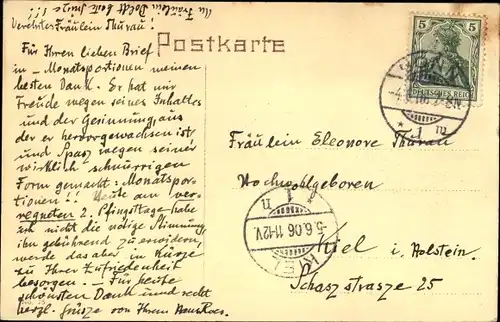 An Fräulein Dolett beste Grüße !!!
Verehrtes Fräulein Thurau!
Für Ihren lieben Brief
in - Monatsportionen meinen
besten Dank. Er hat mir
Freude wegen seines Inhaltes
und der Gesinnung, aus
der er hervorgewachsen ist
und Spaß wegen seiner
wirklich schnurrigen
Form gemacht: Monatspor-
tionen!! Heute am ver-
regneten 2. Pfingsttage habe
ich nicht die nötige Stimmung,
ihn gebührend zu erwidern,
werde das aber in Kürze
zu Ihrer Zufriedenheit
besorgen. - Für heute
schönsten Dank und recht
herzl. Grüsze von Ihrem
Postkarte
5 5
DEUTSCHES REICH
Fräulein Eleonore Thurau
Hochwohlgeboren
Kiel i. Holstein.
Schaszstrasze 25
KIEL
5.6.06 11-12V.
1
n